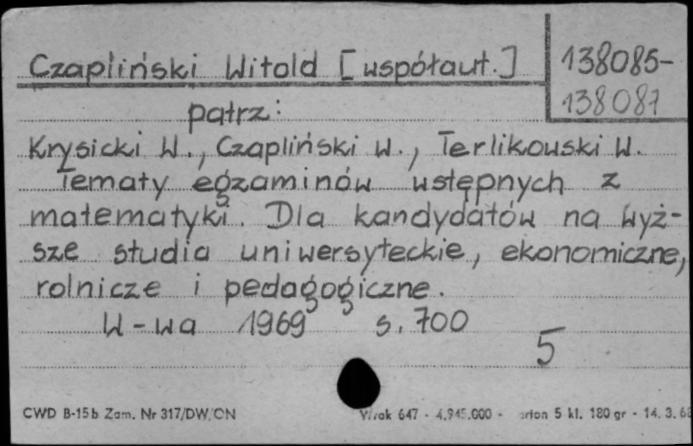 Czapliński Witold [współaut.] 138085-
138087
patrz:
Krysicki W., Czapliński W., Terlikowski W.
Tematy egzaminów wstępnych z
matematyki. Dla kandydatów na wyż-
sze studia uniwersyteckie, ekonomiczne,
rolnicze i pedagogiczne.
W-wa 1969 s. 700
5
CWD B-15b Zam. Nr 317/DW/CN 647 - 4.945.000 - 5 kl. 180 gr - 14. 3. 68